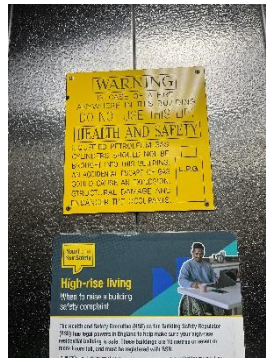 WARNING
IN CASE OF A FIRE
ANYWHERE IN THIS BUILDING
DO NOT USE THIS LIFT
HEALTH AND SAFETY
LIQUEFIED PETROLEUM GAS
CYLINDERS SHOULD NOT BE
BROUGHT INTO THIS BUILDING.
AN ACCIDENTAL ESCAPE OF GAS
COULD CAUSE AN EXPLOSION,
STRUCTURAL DAMAGE AND
ENDANGER THE OCCUPANTS.
L.P.G.
Your Home
Your Safety
High-rise living
When to raise a building
safety complaint
The Health and Safety Executive (HSE) as the Building Safety Regulator
(BSR) has legal powers in England to help make sure your high-rise
residential building is safe. These buildings are 18 metres or seven or
more floors tall, and must be registered with BSR.